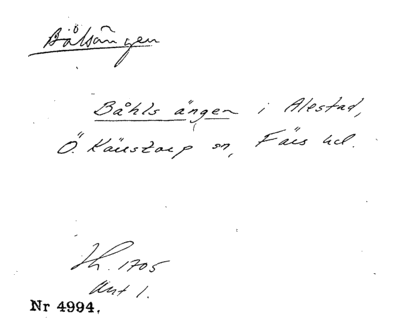 Bålsängen
Båhls ängen i Alestad,
Ö. Kärstorp sn, Färs hd.
Jb. 1705
Ant 1.
Nr 4994.